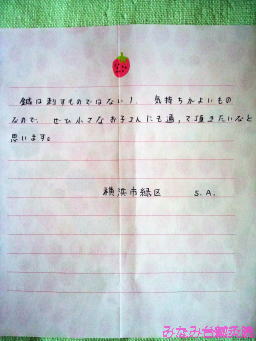 鍼は刺すものではない！ 気持ちがよいもの
なので、ぜひ小さなお子さんにも通って頂きたいなと
思います。
横浜市緑区 S.A.
みなみ台鍼灸院